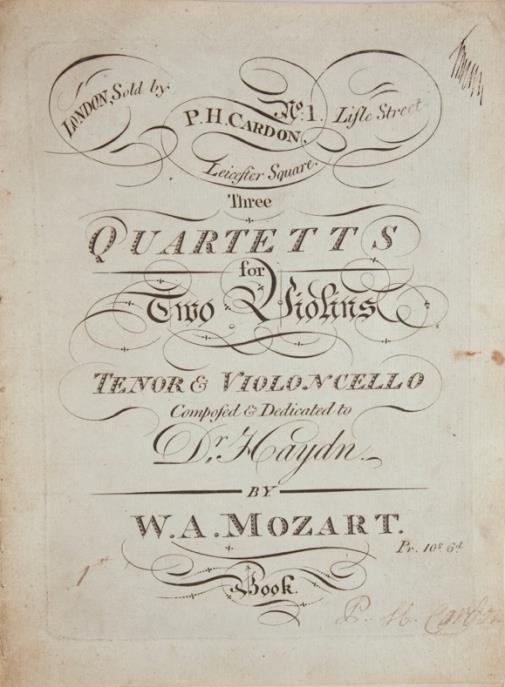 LONDON, Sold by
P. H. CARDON, No. 1. Lisle Street
Leicester Square.
Three
QUARTETTS
for
Two Violins
TENOR & VIOLONCELLO
Composed & Dedicated to
Dr. Haydn.
BY
W. A. MOZART.
Pr. 10s. 6d.
1st
Book.
P. H. Cardon